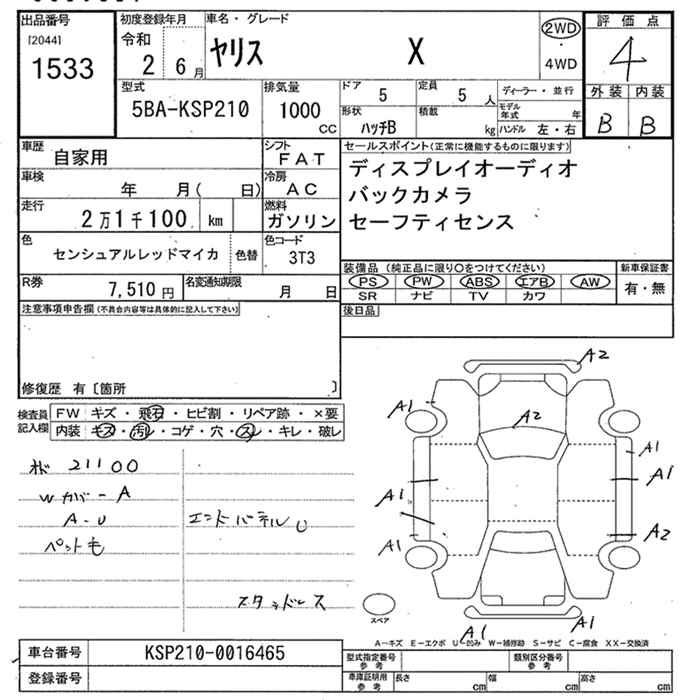 出品番号 初度登録年月 車名・グレード 評価点
[2044] 令和 2WD
1533 2 6月 ヤリス X ・ 4
4WD
型式 排気量 ドア 5 定員 5人 ディーラー・並行 外装 内装
5BA-KSP210 1000cc 形状 ハッチB 積載 kg モデル年式 年 B B
ハンドル 左・右
車歴 自家用 シフト FAT セールスポイント(正常に機能するものに限ります)
車検 年 月( 日) 冷房 AC ディスプレイオーディオ
走行 2万1千100 km 燃料 ガソリン バックカメラ
セーフティセンス
色 センシュアルレッドマイカ 色替 色コード 3T3
装備品(純正品に限り○をつけてください) 新車保証書
R券 7,510円 名変通知期限 月 日 PS PW ABS エアB AW 有・無
SR ナビ TV カワ
注意事項申告欄(不具合内容等は具体的に記入して下さい) 後日品
修復歴 有〔箇所 〕
検査員記入欄 FW キズ・飛石・ヒビ割・リペア跡・×要
内装 キズ・汚レ・コゲ・穴・スレ・キレ・破レ
21100
Wカバー A
A-U
ペット毛
スタッドレス
A2
A1 A2
A1
A1 A1
A1 A2
スペア
A1 A1
A-キズ E-エクボ U-凹み W-補修跡 S-サビ C-腐食 XX-交換済
車台番号 KSP210-0016465 型式指定番号 参考 類別区分番号 参考
登録番号 車庫証明用 参考 長さ cm 幅 cm 高さ cm